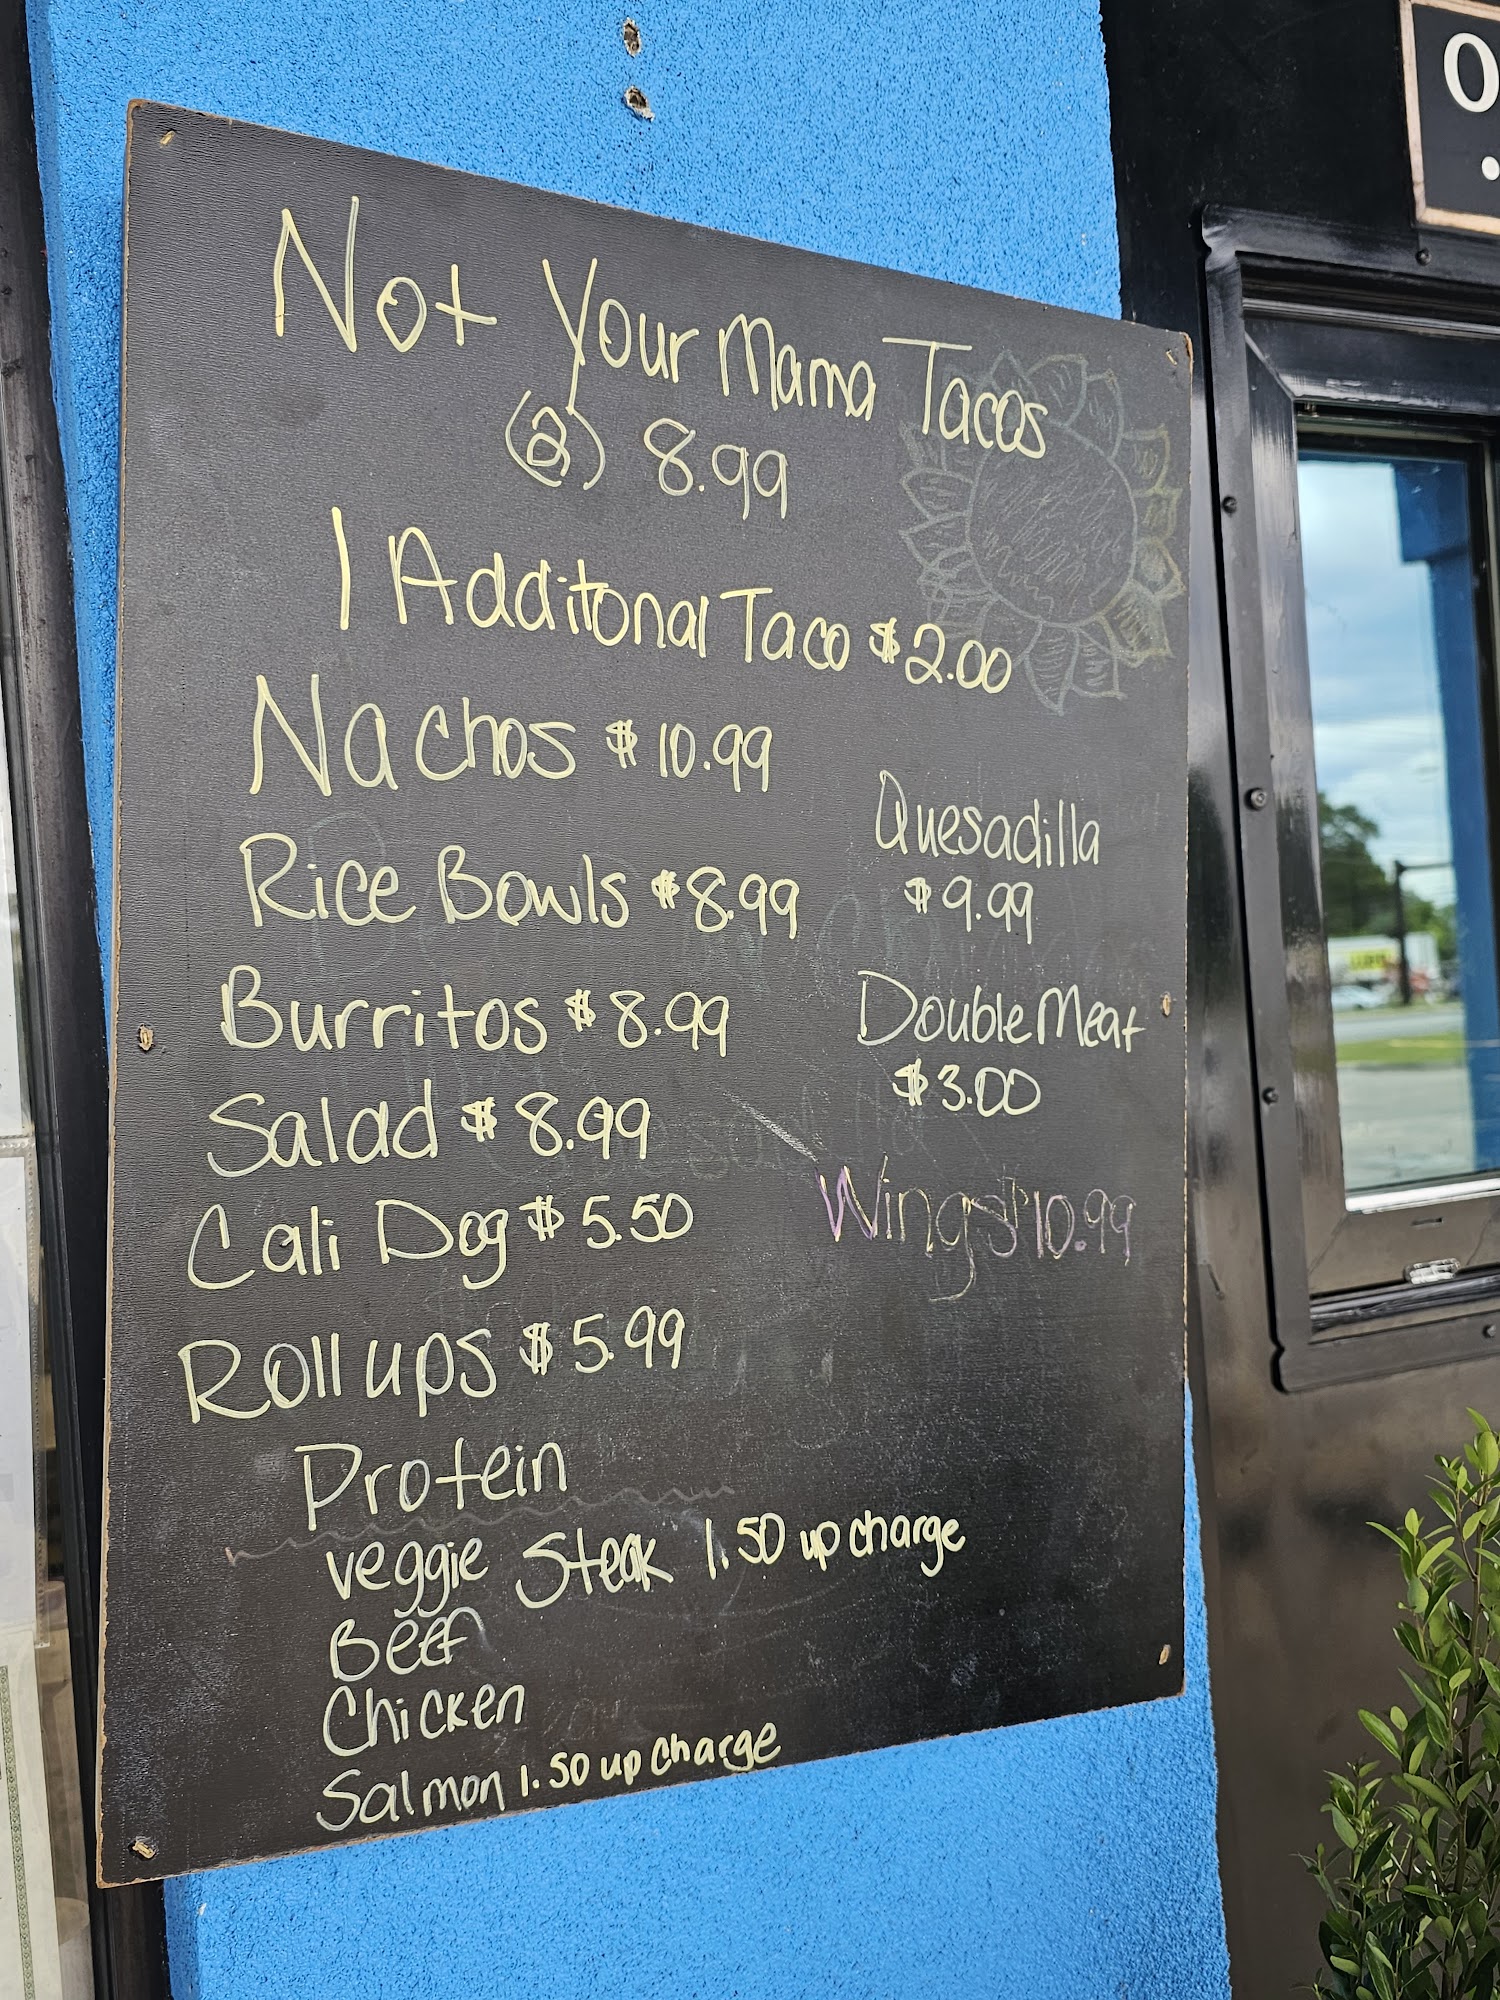 Not Your Mama Tacos
(2) 8.99
1 Additonal Taco $2.00
Nachos $10.99
Rice Bowls $8.99
Burritos $8.99
Salad $8.99
Cali Dog $5.50
Roll ups $5.99
Quesadilla
$9.99
Double Meat
$3.00
Wings $10.99
Protein
veggie Steak 1.50 up charge
Beef
Chicken
Salmon 1.50 up charge